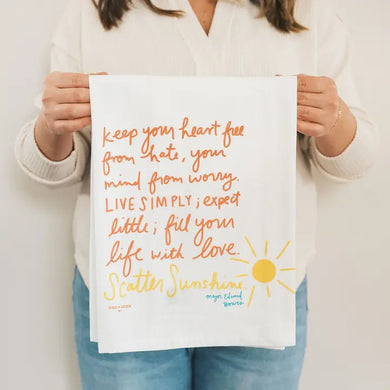 keep your heart free
from hate, your
mind from worry.
LIVE SIMPLY; expect
little; fill your
life with love.
Scatter Sunshine.
Major Edward
Bowes